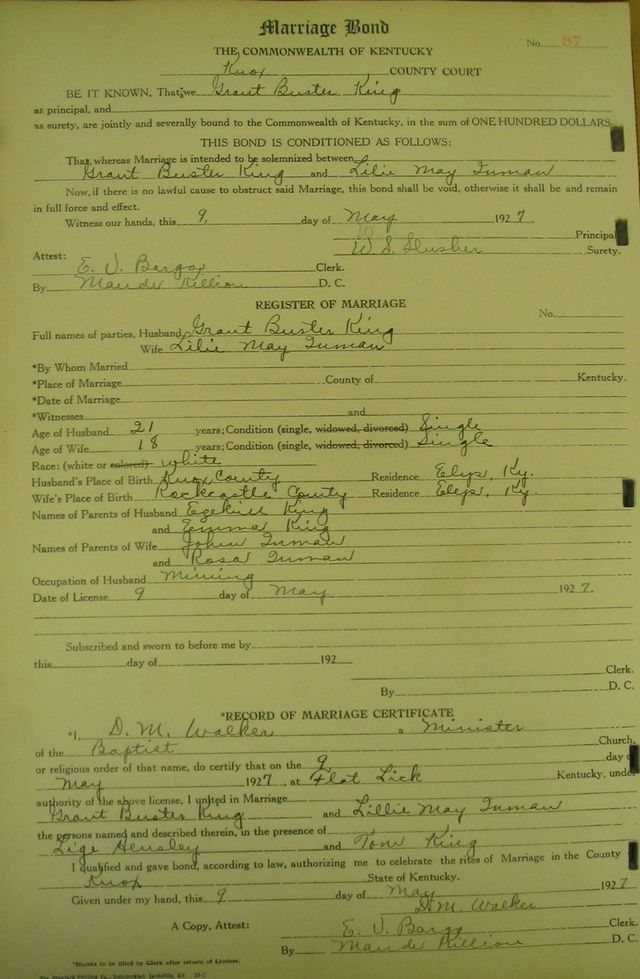 Marriage Bond
No. 87
THE COMMONWEALTH OF KENTUCKY
Knox COUNTY COURT
BE IT KNOWN, That we Grant Buster King
as principal, and
as surety, are jointly and severally bound to the Commonwealth of Kentucky, in the sum of ONE HUNDRED DOLLARS
THIS BOND IS CONDITIONED AS FOLLOWS:
That, whereas Marriage is intended to be solemnized between
Grant Buster King and Lilie May Inman
Now, if there is no lawful cause to obstruct said Marriage, this bond shall be void, otherwise it shall be and remain
in full force and effect.
Witness our hands, this 9 day of May 1927.
Principal
W. S. Slusher Surety.
Attest:
E. V. Bargo Clerk.
By Maude Killion D. C.
REGISTER OF MARRIAGE
No.
Full names of parties, Husband Grant Buster King
Wife Lilie May Inman
*By Whom Married
*Place of Marriage County of Kentucky.
*Date of Marriage
*Witnesses and
Age of Husband 21 years; Condition (single, widowed, divorced) Single
Age of Wife 18 years; Condition (single, widowed, divorced) Single
Race: (white or colored) white
Husband's Place of Birth Knox County Residence Elys, Ky.
Wife's Place of Birth Rockcastle County Residence Elys, Ky.
Names of Parents of Husband Ezekiel King
and Emma King
Names of Parents of Wife John Inman
and Rosa Inman
Occupation of Husband Mining
Date of License 9 day of May 1927.
Subscribed and sworn to before me by
this day of 192
Clerk.
By D. C.
*RECORD OF MARRIAGE CERTIFICATE
*I, D. M. Walker a Minister
of the Baptist Church,
or religious order of that name, do certify that on the 9 day o
May 1927, at Flat Lick Kentucky, under
authority of the above license, I united in Marriage
Grant Buster King and Lillie May Inman
the persons named and described therein, in the presence of
Lige Hensley and Tom King
I qualified and gave bond, according to law, authorizing me to celebrate the rites of Marriage in the County
Knox State of Kentucky.
Given under my hand, this 9 day of May 1927
D. M. Walker
A Copy, Attest: E. V. Bargo Clerk.
By Maude Killion D. C.
*Blanks to be filled by Clerk after return of License.